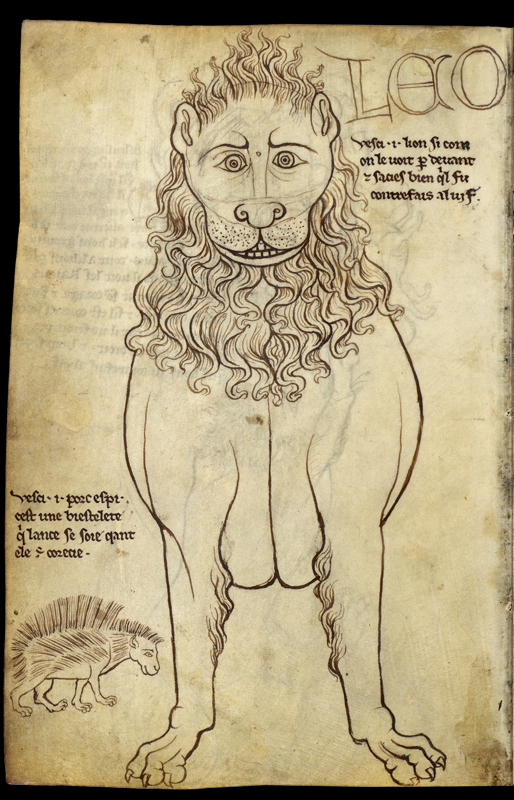 LEO
vesci · i · lion si com
on le voit p devant
⁊ sacies bien ql fu
contrefais al vif.
vesci · i · porc espi ·
cest une biestelete
q̇ lance se soie qant
ele ÷ corecie ·